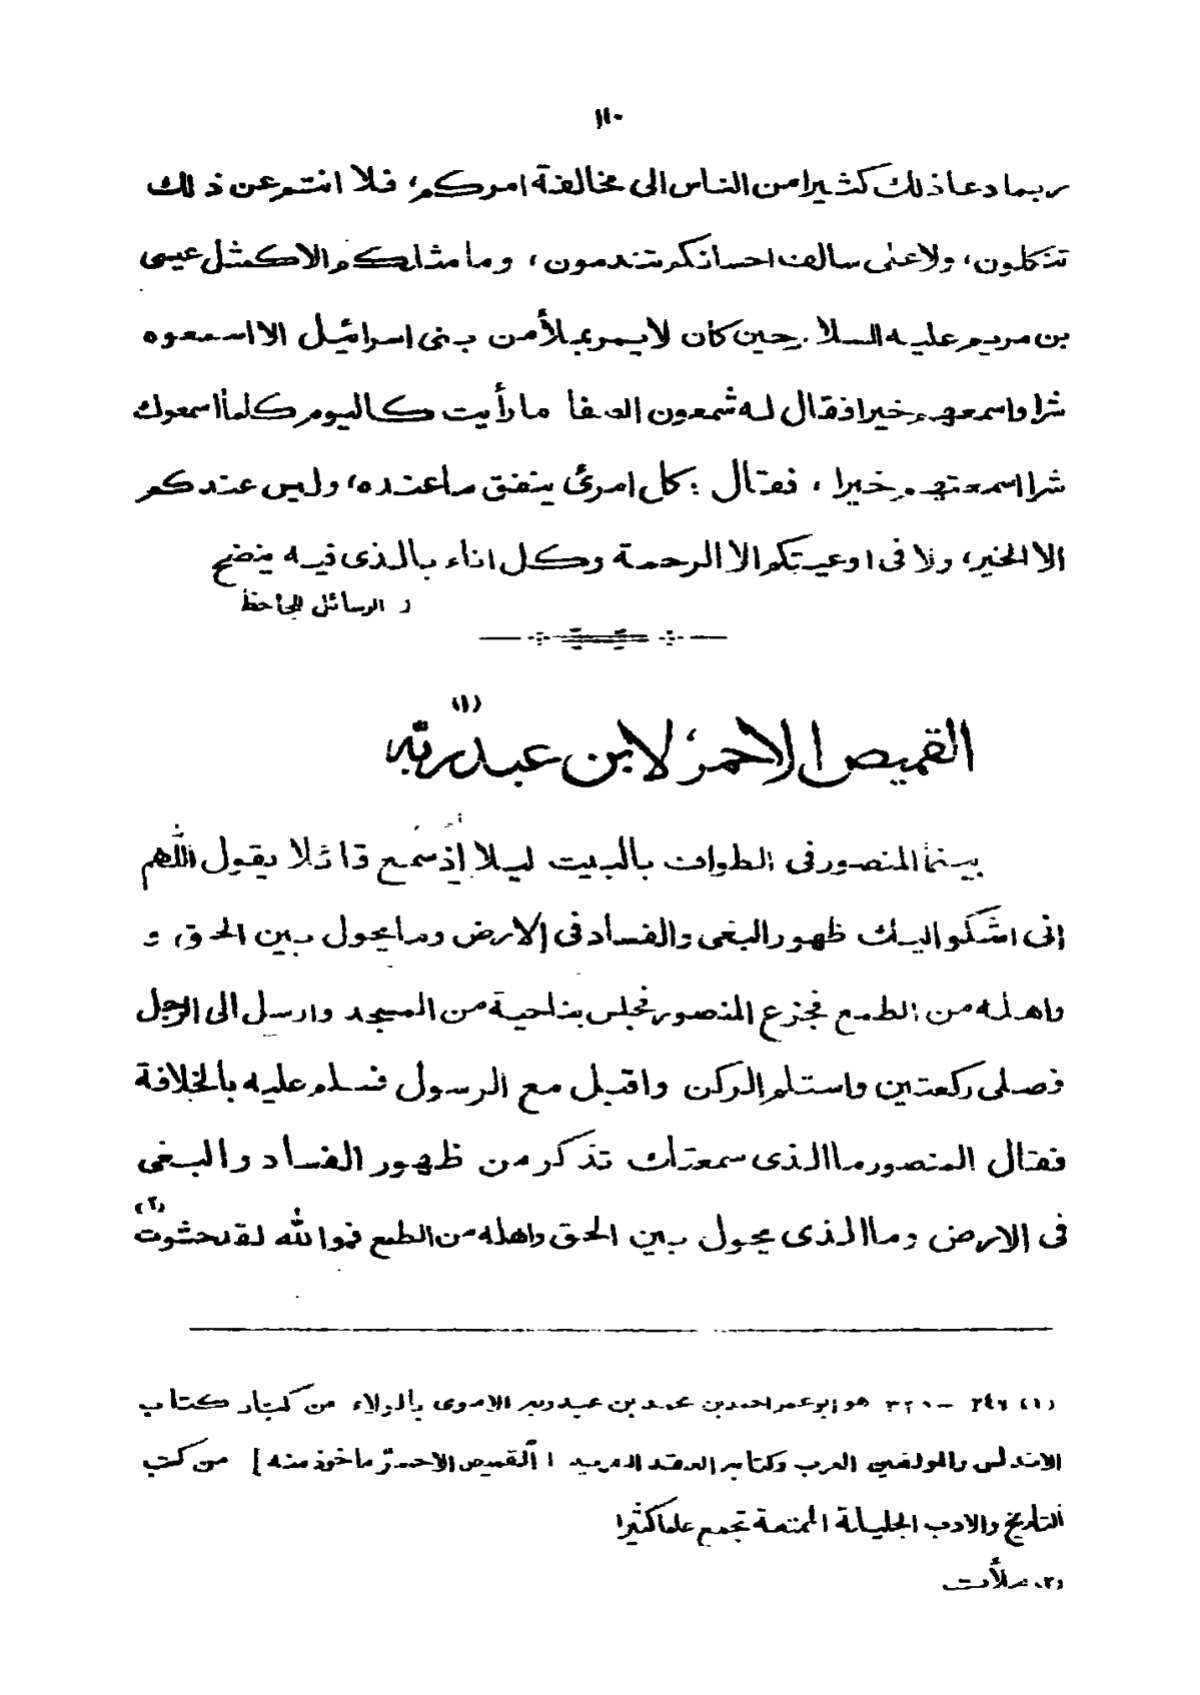 ١١٠
ربما دعا ذلك كثيرا من الناس الى مخالفة امركم، فلا انتم عن ذلك
تنكلون، ولا على سالف احسانكم تندمون، وما مثلكم الا كمثل عيسى
بن مريم عليه السلام حين كان لا يمر بملأ من بنى اسرائيل الا اسمعوه
شرا واسمعهم خيرا فقال له شمعون الصفا ما رأيت كاليوم كلما اسمعوك
شرا اسمعتهم خيرا، فقال: كل امرئ ينفق ما عنده، وليس عندكم
الا الخير، ولا فى اوعيتكم الا الرحمة وكل اناء بالذى فيه ينضح
الرسائل للجاحظ
القميص الاحمر لابن عبد ربه (١)
بينما المنصور فى الطواف بالبيت ليلا إذ سمع قائلا يقول اللهم
إنى اشكو اليك ظهور البغى والفساد فى الارض وما يحول بين الحق، و
واهله من الطمع فجزع المنصور فجلس بناحية من المسجد وارسل الى الرجل
فصلى ركعتين واستلم الركن واقبل مع الرسول فسلم عليه بالخلافة
فقال المنصور ما الذى سمعتك تذكر من ظهور الفساد والبغى
فى الارض وما الذى يحول بين الحق واهله من الطمع فوالله لقد حشوت (٢)
(١) ٢٤٦ - ٣٢٠ هو ابو عمر احمد بن محمد بن عبد ربه الاموى بالولاء من كبار كتاب
الاندلس والمولفين العرب وكتابه العقد الفريد [القميص الاحمر ماخوذ منه] من كتب
التاريخ والادب الجليلة الممتعة تجمع علما كثيرا
(٢) ملأت